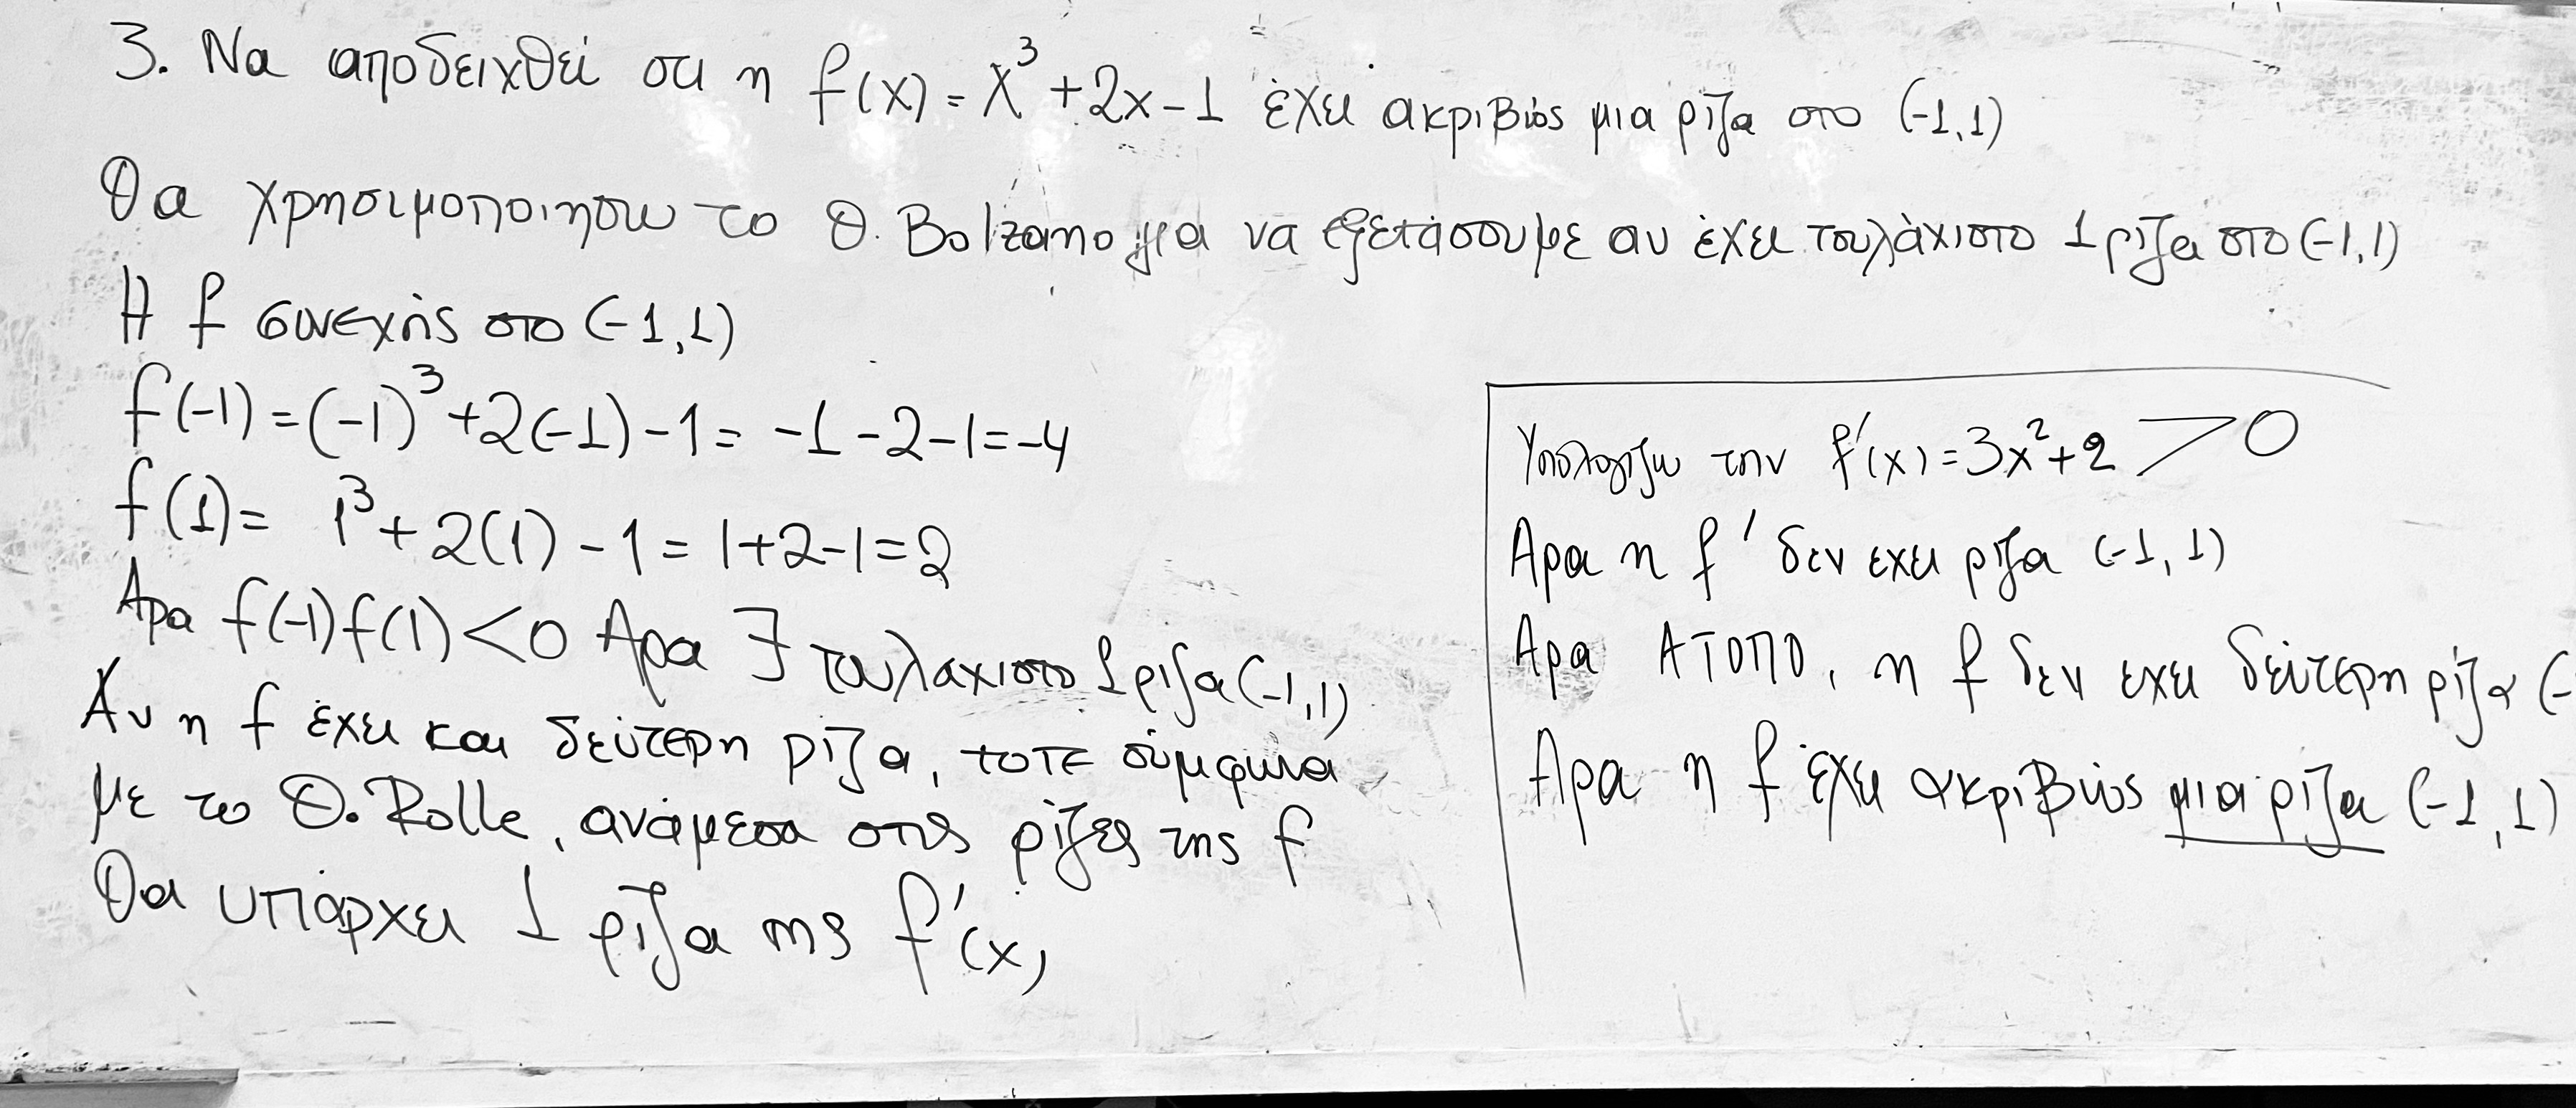 3. Να αποδειχθεί οτι η f(x) = x³ + 2x - 1 έχει ακριβώς μια ρίζα στο (-1,1)
Θα χρησιμοποιησω το Θ. Bolzano για να εξετάσουμε αν έχει τουλάχιστο 1 ρίζα στο (-1,1)
Η f συνεχής στο (-1,1)
f(-1) = (-1)³ + 2(-1) - 1 = -1 - 2 - 1 = -4
f(1) = 1³ + 2(1) - 1 = 1+2-1 = 2
Αρα f(-1) f(1) < 0 Αρα ∃ τουλαχιστο 1 ριζα (-1,1)
Αν η f έχει και δεύτερη ρίζα, τοτε σύμφωνα
με το Θ. Rolle, ανάμεσα στις ρίζες της f
Θα υπάρχει 1 ρίζα της f'(x)
Υπολογιζω την f'(x) = 3x² + 2 > 0
Αρα η f' δεν εχει ριζα (-1,1)
Αρα ΑΤΟΠΟ, η f δεν εχει δεύτερη ρίζα (-
Αρα η f έχει ακριβώς μια ρίζα (-1,1)